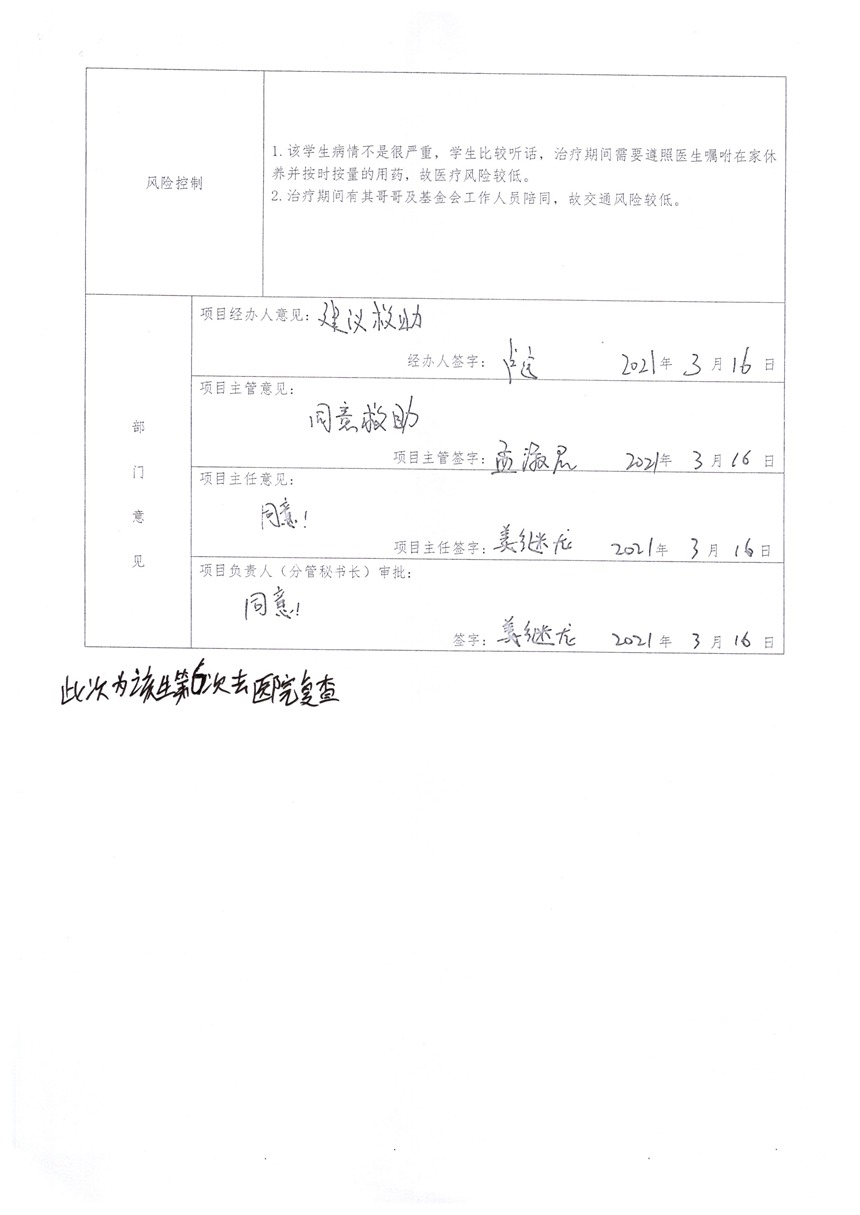 风险控制
1.该学生病情不是很严重，学生比较听话，治疗期间需要遵照医生嘱咐在家休
养并按时按量的用药，故医疗风险较低。
2.治疗期间有其哥哥及基金会工作人员陪同，故交通风险较低。
部门意见
项目经办人意见：建议救助
经办人签字： 2021年 3月16日
项目主管意见：
同意救助
项目主管签字：孟淑君 2021年 3月16日
项目主任意见：
同意！
项目主任签字：姜继龙 2021年 3月16日
项目负责人（分管秘书长）审批：
同意！
签字：姜继龙 2021年 3月16日
此次为该生第6次去医院复查